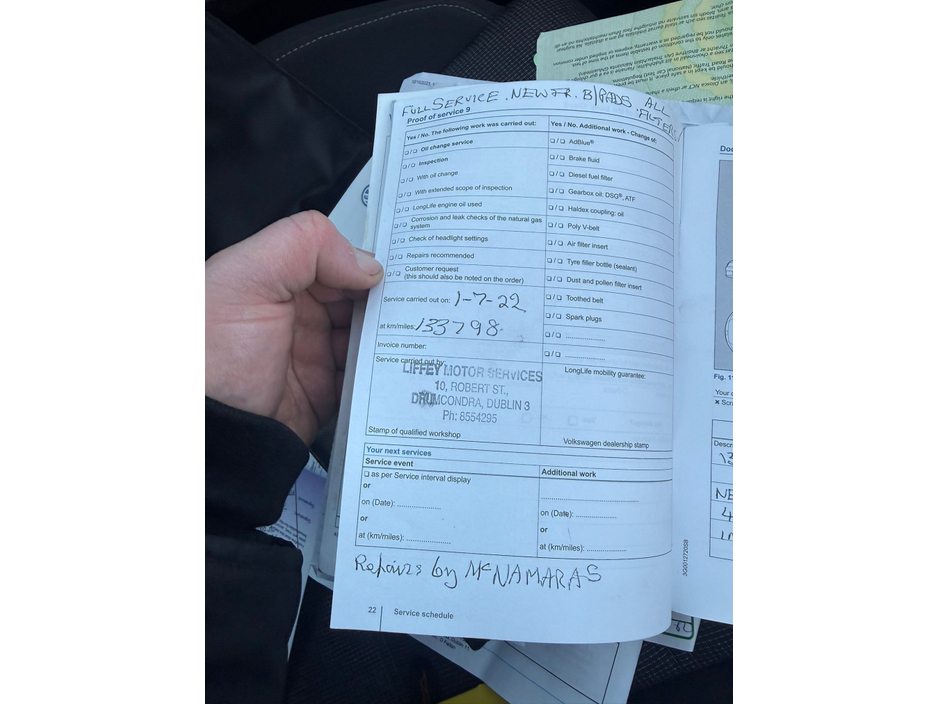 FULL SERVICE . NEW FR. B/PADS ALL
FILTERS
Proof of service 9
Yes / No. The following work was carried out:
❑ / ❑ Oil change service
❑ / ❑ Inspection
❑ / ❑ With oil change
❑ / ❑ With extended scope of inspection
❑ / ❑ LongLife engine oil used
❑ / ❑ Corrosion and leak checks of the natural gas
system
❑ / ❑ Check of headlight settings
❑ / ❑ Repairs recommended
❑ / ❑ Customer request
(this should also be noted on the order)
Service carried out on: 1-7-22
at km/miles: 133798.
Invoice number:
Service carried out by:
LIFFEY MOTOR SERVICES
10, ROBERT ST.,
DRUMCONDRA, DUBLIN 3
Ph: 8554295
Stamp of qualified workshop
Yes / No. Additional work - Change of:
❑ / ❑ AdBlue®
❑ / ❑ Brake fluid
❑ / ❑ Diesel fuel filter
❑ / ❑ Gearbox oil: DSG®, ATF
❑ / ❑ Haldex coupling: oil
❑ / ❑ Poly V-belt
❑ / ❑ Air filter insert
❑ / ❑ Tyre filler bottle (sealant)
❑ / ❑ Dust and pollen filter insert
❑ / ❑ Toothed belt
❑ / ❑ Spark plugs
❑ / ❑ ..................
❑ / ❑ ..................
LongLife mobility guarantee:
Volkswagen dealership stamp
Your next services
Service event
❑ as per Service interval display
or
on (Date): ..................
or
at (km/miles): ..................
Additional work
..................
on (Date): ..................
or
at (km/miles): ..................
Repairs by McNAMARAS
22
Service schedule
3G0012720SB
Fig. 11
Your
Descr